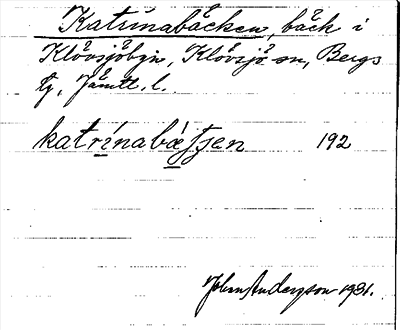 Katrinabäcken, bäck i
Klövsjöbyn, Klövsjö sn, Bergs
tg, Jämtl. l.
katrínabǽʃʃen 192
John Anderzon 1931.